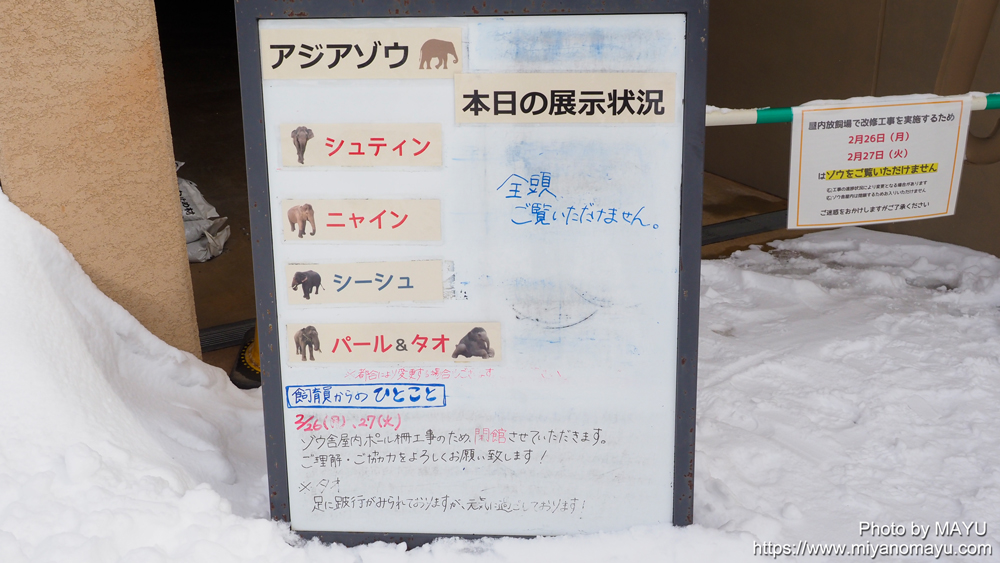 アジアゾウ
本日の展示状況
シュティン
ニャイン
シーシュ
パール&タオ
全頭
ご覧いただけません。
※都合により変更する場合がございます
飼育員からのひとこと
3/26(月)、27(火)
ゾウ舎屋内ポール柵工事のため、閉館させていただきます。
ご理解・ご協力をよろしくお願い致します!
※タオ
足に跛行がみられておりますが、元気に過ごしております!
屋内放飼場で改修工事を実施するため
2月26日(月)
2月27日(火)
はゾウをご覧いただけません
ご迷惑をおかけしますがご了承ください
Photo by MAYU
https://www.miyanomayu.com/